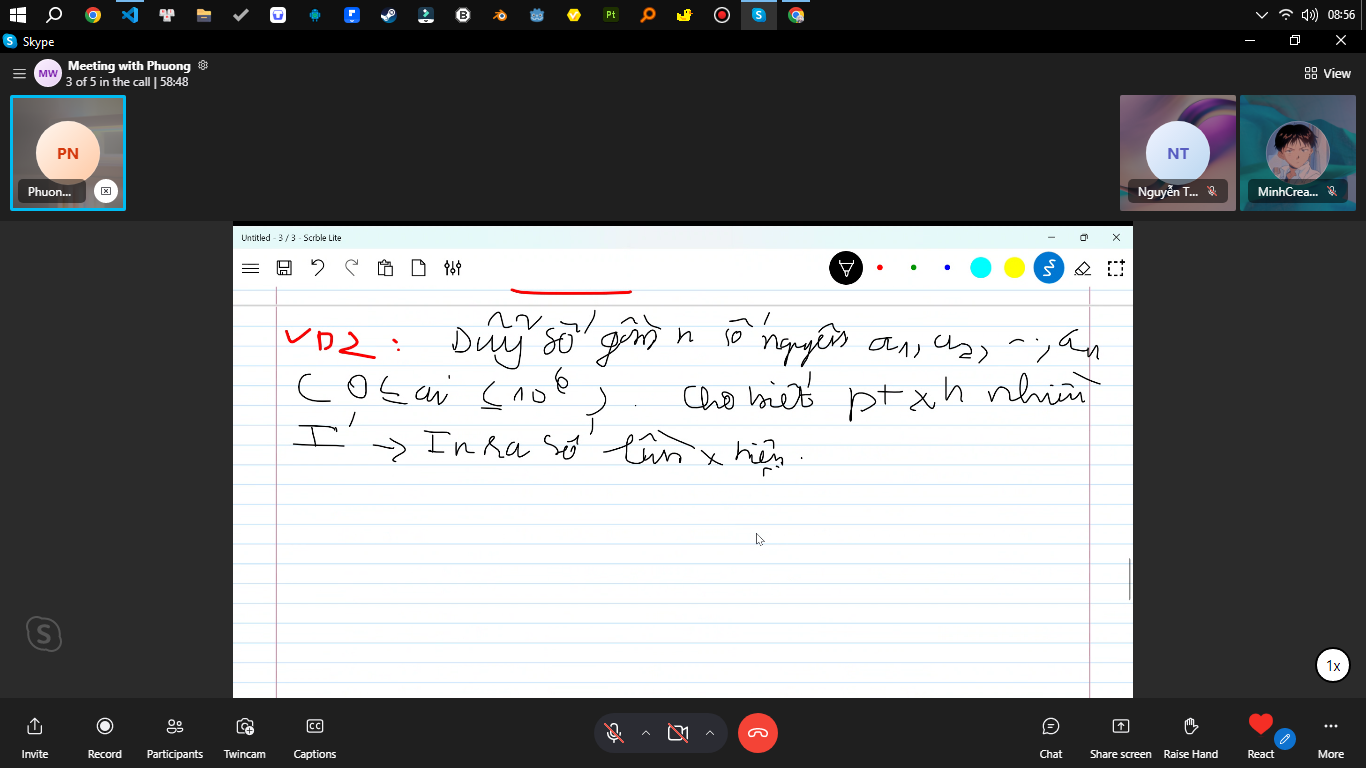 08:56
Skype
Meeting with Phuong
3 of 5 in the call | 58:48
View
MW
PN
Phuon...
NT
Nguyễn T...
MinhCrea...
Untitled - 3 / 3 - Scrble Lite
VD2 : Dãy số gồm n số nguyên a1, a2, ..., an
( 0 ≤ ai ≤ 10^6 ) . Cho biết pt xh nhiều
I' → In ra số lần x hiện .
1x
Invite
Record
Participants
Twincam
Captions
Chat
Share screen
Raise Hand
React
More